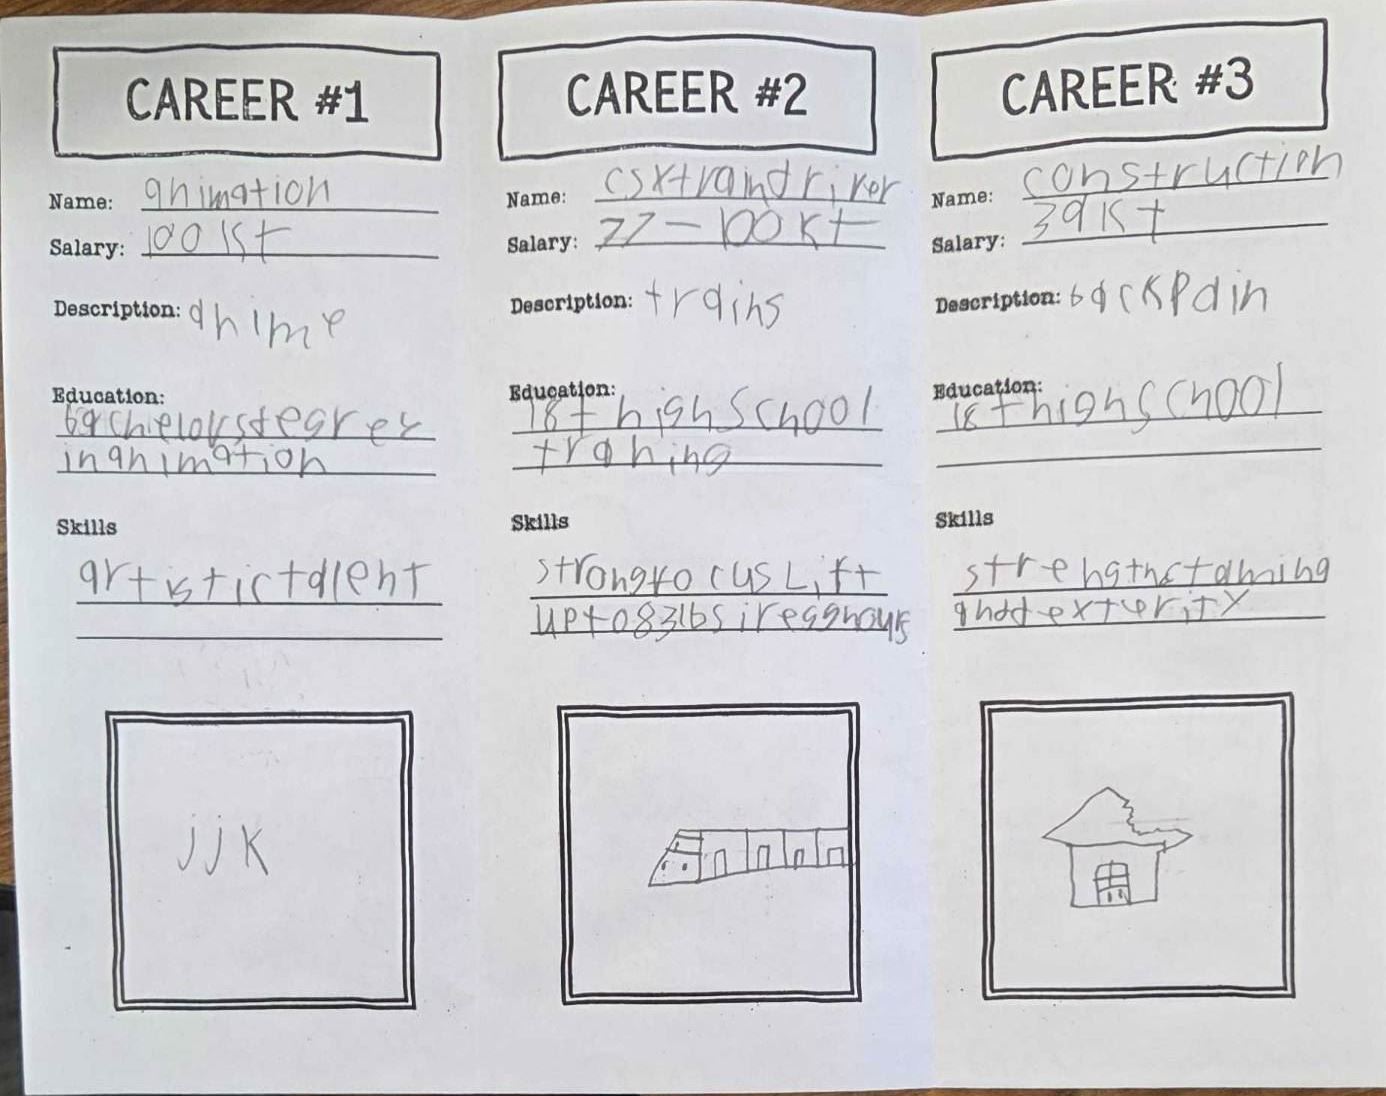 CAREER #1
Name: animation
Salary: 100 k+
Description: anime
Education:
bachielors degree
in animation
Skills
artistic talent
jjk
CAREER #2
Name: csx train driver
Salary: 77 - 100 k+
Description: trains
Education:
18+ high school
traning
Skills
strong focus Lift
up to 83 lbs iregg hours
CAREER #3
Name: construction
Salary: 39 k+
Description: back pain
Education:
18+ high school
Skills
strength staming
and dexterity